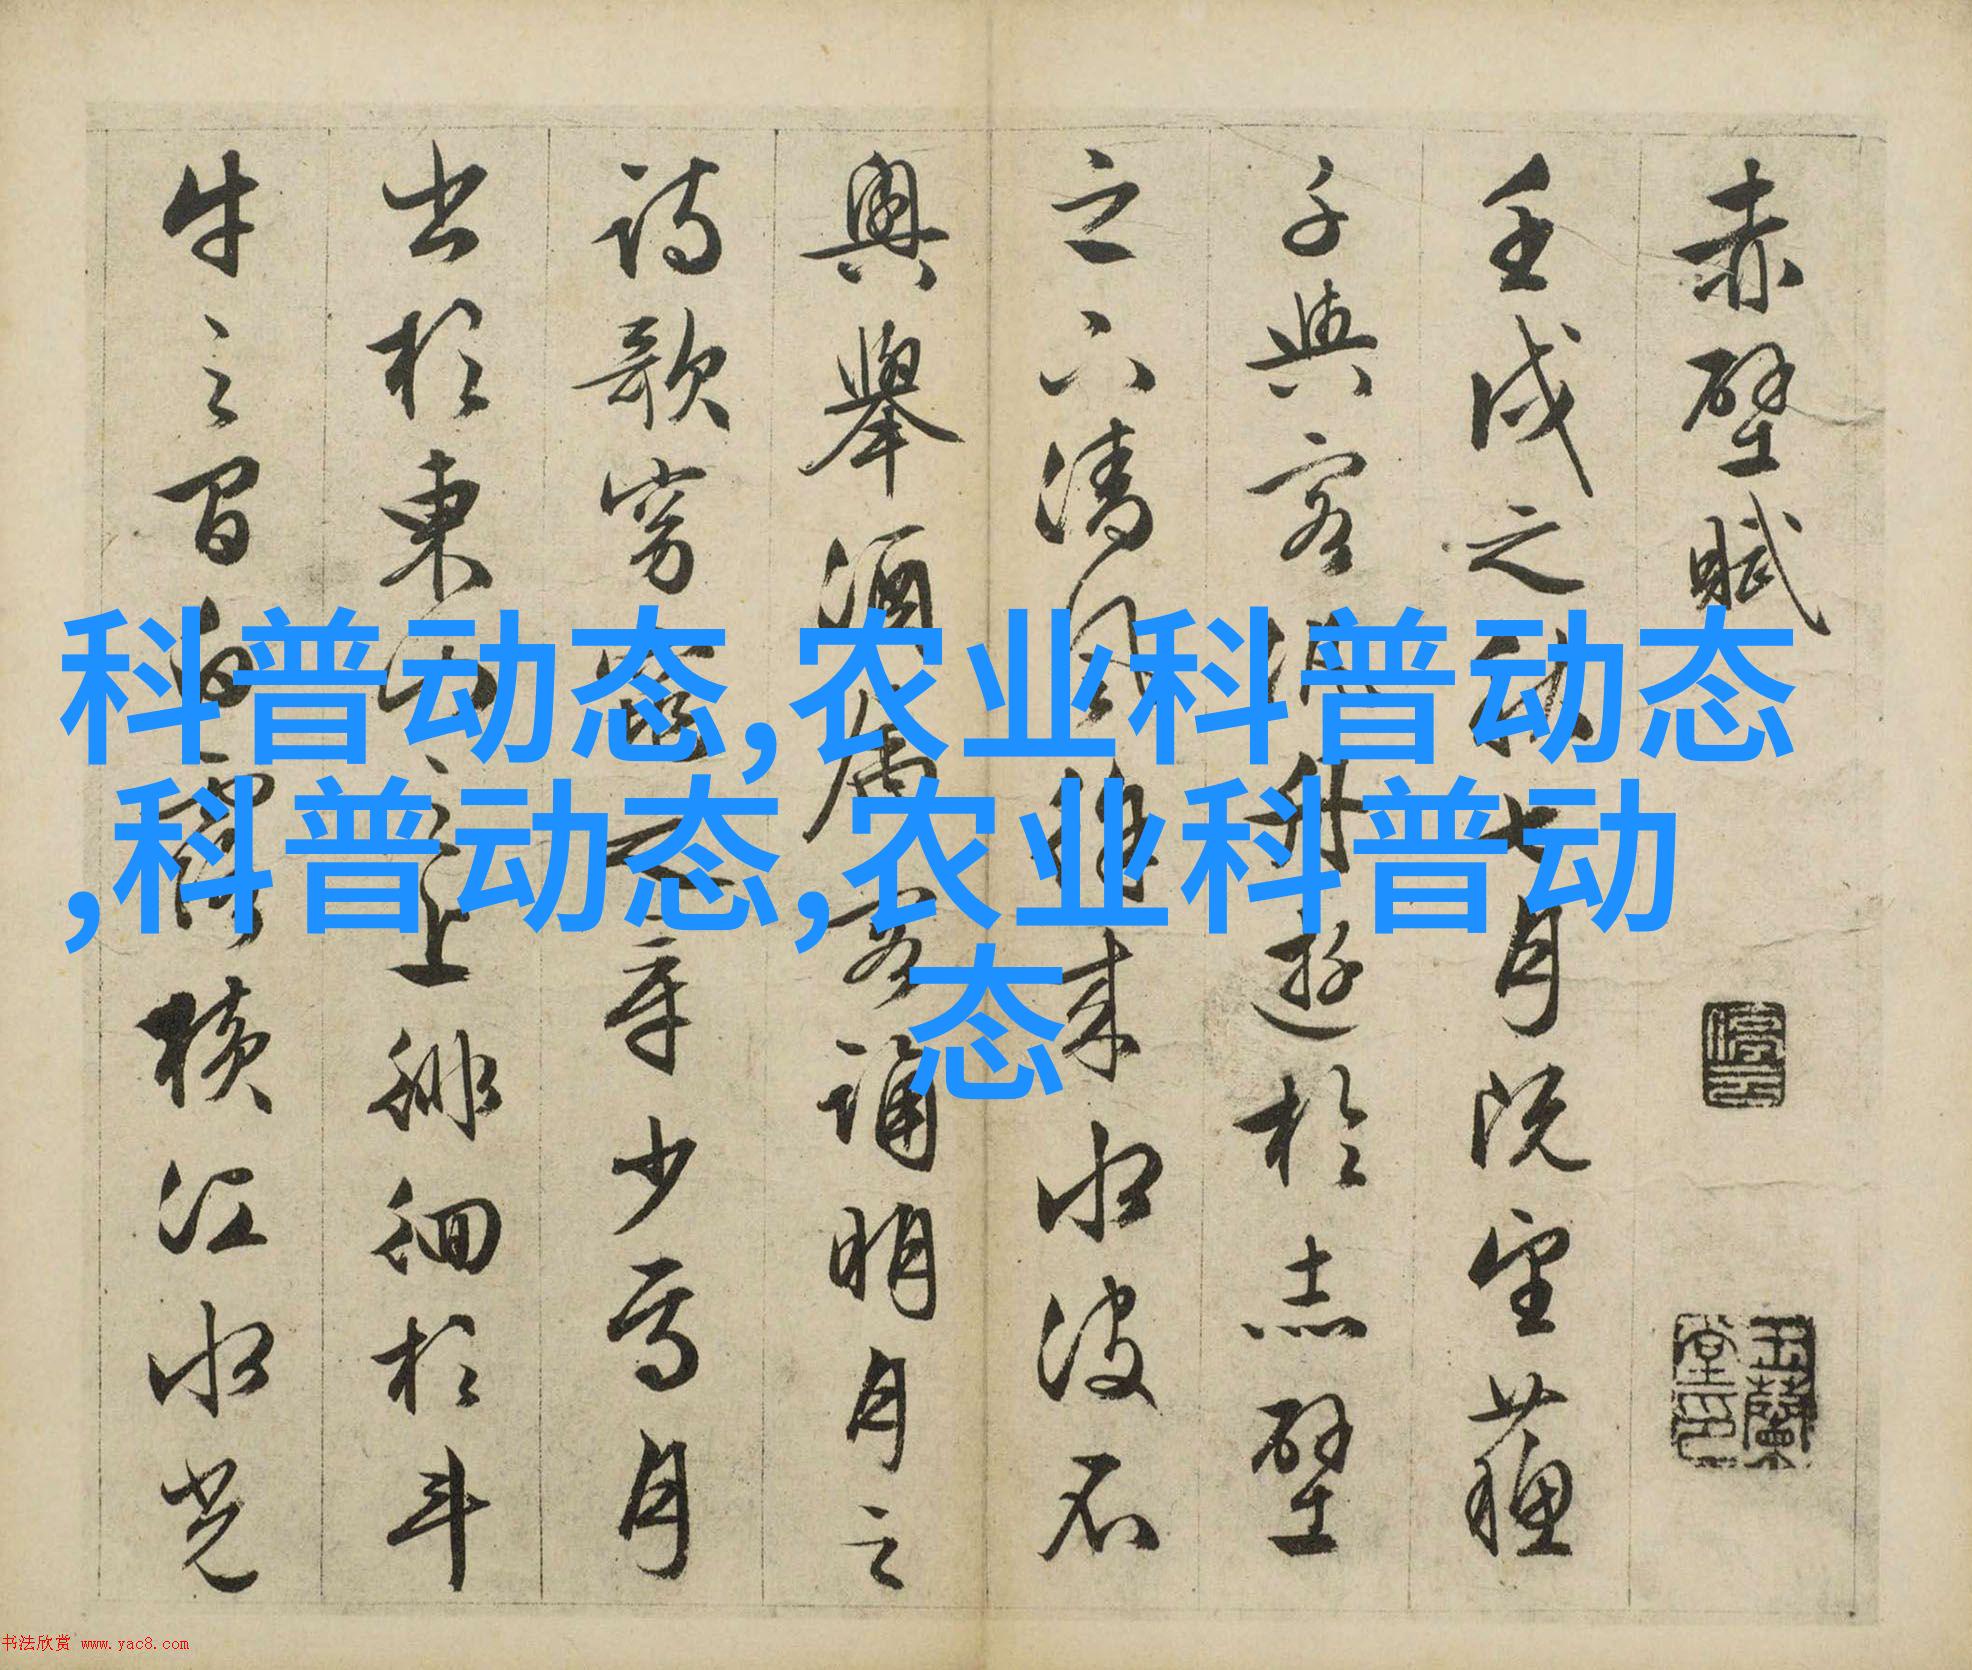 赤壁賦
壬戌之秋七月既望蘇
子與客泛舟遊於赤壁
之下清風徐來水波不
興舉酒屬客誦明月之
詩歌窈窕之章少焉月
出於東山之上徘徊於斗
牛之間白露橫江水光
玉蘭堂印
科普动态,农业科普动态
,科普动态,农业科普动
态
书法欣赏 www.yac8.com